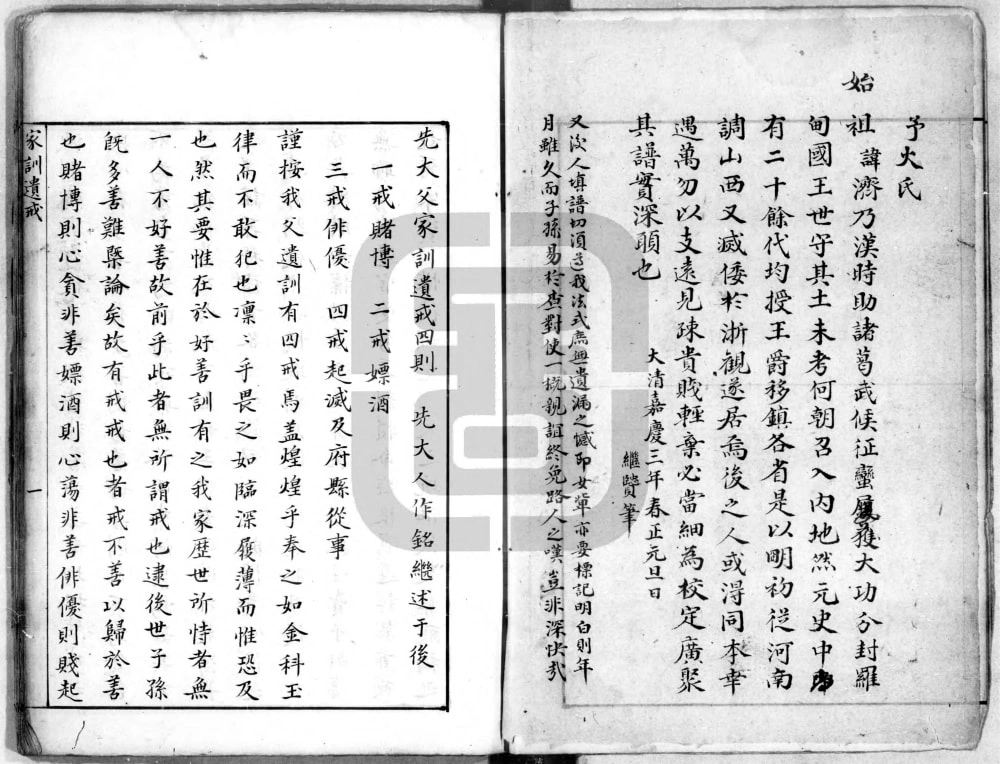 予火氏
始
祖諱濟乃漢時助諸葛武侯征蠻屢獲大功分封羅
甸國王世守其土未考何朝召入內地然元史中
有二十餘代均授王爵移鎮各省是以明初從河南
調山西又滅倭於浙觀遂居焉後之人或得同本幸
遇萬勿以支遠見疎貴賤輕棄必當細為校定廣聚
其譜實深願也
大清嘉慶三年春正元旦日
繼賢筆
又後人填譜切須遵我法式庶無遺漏之憾即女輩亦要標記明白則年
月雖久而子孫易於查對使一槪親誼終免路人之嘆豈非深快哉
先大父家訓遺戒四則 先大人作銘繼述于後
一戒賭博 二戒嫖酒
三戒俳優 四戒起滅及府縣從事
謹按我父遺訓有四戒焉盖煌煌乎奉之如金科玉
律而不敢犯也凛〻乎畏之如臨深履薄而惟恐及
也然其要惟在於好善訓有之我家歷世所恃者無
一人不好善故前乎此者無所謂戒也逮後世子孫
旣多善難槩論矣故有戒戒也者戒不善以歸於善
也賭博則心貪非善嫖酒則心蕩非善俳優則賤起
家訓遺戒
一